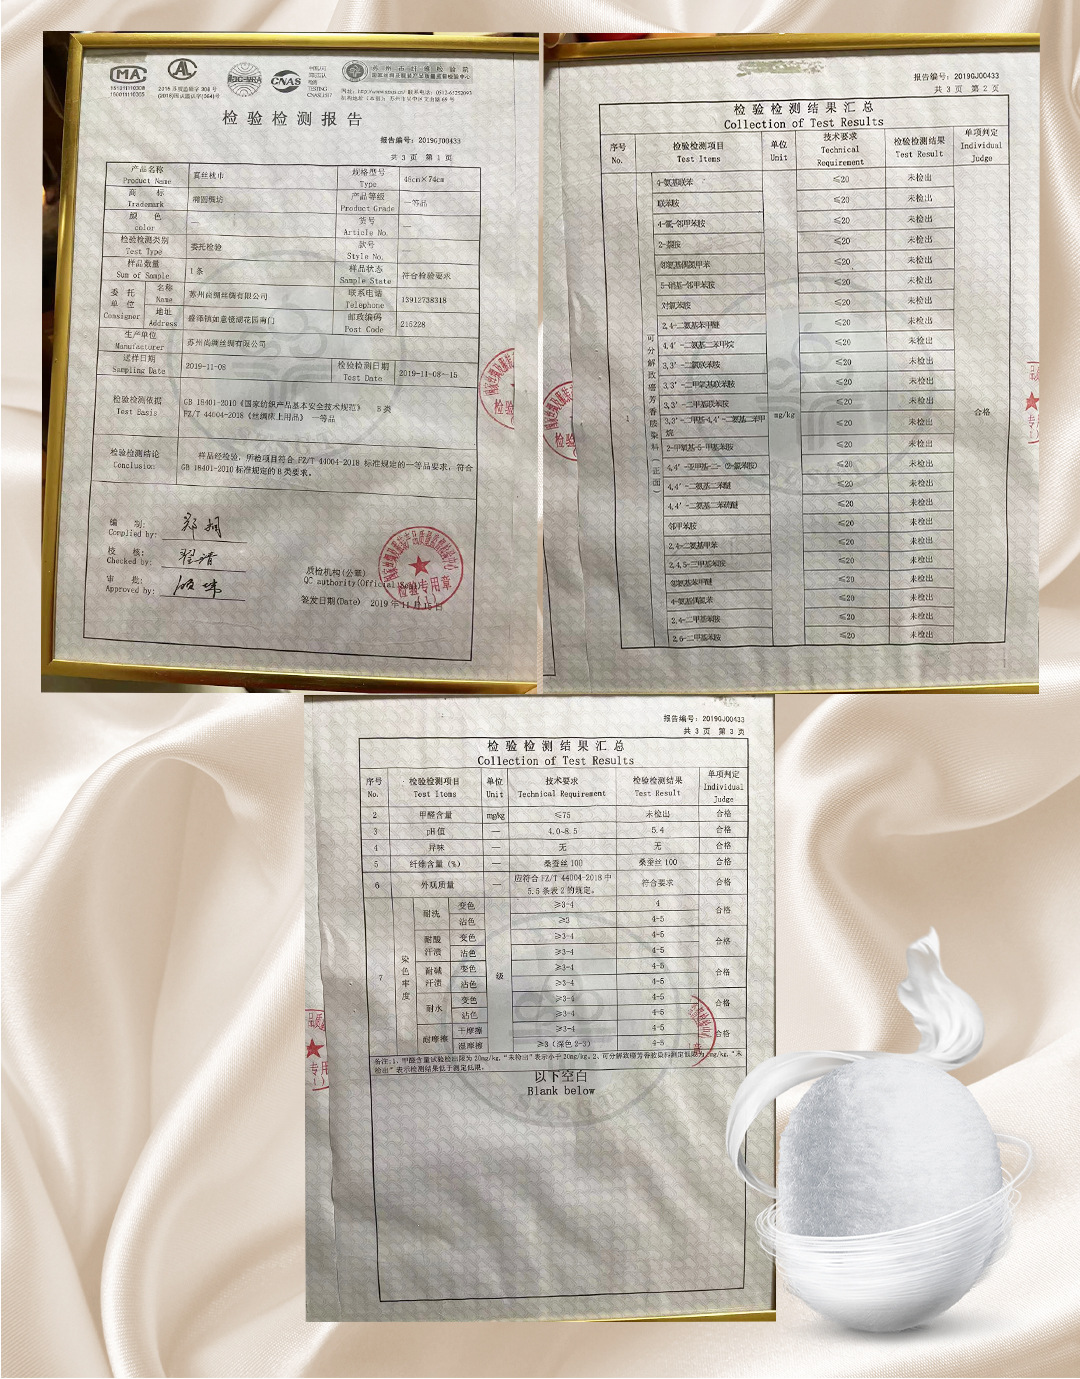 MA
151011110308
160011110305
AL
2018 苏质监验字 308 号
(2018)国认监认字(064)号
ILAC-MRA
CNAS
TESTING
苏州市纤维检验院
国家丝绸及服装产品质量监督检验中心
检验检测报告
报告编号: 2019GJ00433
共 3 页 第 1 页
产品名称 Product Name 真丝枕巾 规格型号 Type 48cm×74cm
商标 Trademark 产品等级 Product Grade 一等品
颜色 color — 货号 Article No. —
检验检测类别 Test Type 委托检验 款号 Style No.
样品数量 Sum of Sample 1 条 样品状态 Sample State 符合检验要求
委托单位 Consigner 名称 Name 苏州尚绸丝绸有限公司 联系电话 Telephone 13912738318
地址 Address 盛泽镇如意镜湖花园南门 邮政编码 Post Code 215228
生产单位 Manufacturer 苏州尚绸丝绸有限公司
送样日期 Sampling Date 2019-11-08 检验检测日期 Test Date 2019-11-08~15
检验检测依据 Test Basis GB 18401-2010《国家纺织产品基本安全技术规范》 B 类
FZ/T 44004-2018《丝绸床上用品》 一等品
检验检测结论 Conclusion 样品经检验,所检项目符合 FZ/T 44004-2018 标准规定的一等品要求,符合
GB 18401-2010 标准规定的 B 类要求。
编制: Complied by:
校核: Checked by:
审批: Approved by:
质检机构(公章)
QC authority(Official Seal)
签发日期(Date) 2019 年 11 月 15 日
检验专用章
(1)
报告编号: 2019GJ00433
共 3 页 第 2 页
检验检测结果汇总
Collection of Test Results
序号 No. 检验检测项目 Test Items 单位 Unit 技术要求 Technical Requirement 检验检测结果 Test Result 单项判定 Individual Judge
1 可分解致癌芳香胺染料(正面) mg/kg 合格
4-氨基联苯 ≤20 未检出
联苯胺 ≤20 未检出
4-氯-邻甲苯胺 ≤20 未检出
2-萘胺 ≤20 未检出
邻氨基偶氮甲苯 ≤20 未检出
5-硝基-邻甲苯胺 ≤20 未检出
对氯苯胺 ≤20 未检出
2,4-二氨基苯甲醚 ≤20 未检出
4,4'-二氨基二苯甲烷 ≤20 未检出
3,3'-二氯联苯胺 ≤20 未检出
3,3'-二甲氧基联苯胺 ≤20 未检出
3,3'-二甲基联苯胺 ≤20 未检出
3,3'-二甲基-4,4'-二氨基二苯甲烷 ≤20 未检出
2-甲氧基-5-甲基苯胺 ≤20 未检出
4,4'-亚甲基-二-(2-氯苯胺) ≤20 未检出
4,4'-二氨基二苯醚 ≤20 未检出
4,4'-二氨基二苯硫醚 ≤20 未检出
邻甲苯胺 ≤20 未检出
2,4-二氨基甲苯 ≤20 未检出
2,4,5-三甲基苯胺 ≤20 未检出
邻氨基苯甲醚 ≤20 未检出
4-氨基偶氮苯 ≤20 未检出
2,4-二甲基苯胺 ≤20 未检出
2,6-二甲基苯胺 ≤20 未检出
报告编号: 2019GJ00433
共 3 页 第 3 页
检验检测结果汇总
Collection of Test Results
序号 No. 检验检测项目 Test Items 单位 Unit 技术要求 Technical Requirement 检验检测结果 Test Result 单项判定 Individual Judge
2 甲醛含量 mg/kg ≤75 未检出 合格
3 pH 值 — 4.0~8.5 5.4 合格
4 异味 — 无 无 合格
5 纤维含量(%) — 桑蚕丝 100 桑蚕丝 100 合格
6 外观质量 — 应符合 FZ/T 44004-2018 中 5.5 条表 2 的规定。 符合要求 合格
7 染色牢度 级
耐洗 变色 ≥3-4 4 合格
沾色 ≥3 4-5
耐酸汗渍 变色 ≥3-4 4-5 合格
沾色 ≥3-4 4-5
耐碱汗渍 变色 ≥3-4 4-5 合格
沾色 ≥3-4 4-5
耐水 变色 ≥3-4 4-5 合格
沾色 ≥3-4 4-5
耐摩擦 干摩擦 ≥3-4 4-5 合格
湿摩擦 ≥3(深色 2-3) 4-5
备注:1、甲醛含量试验检出限为 20mg/kg,"未检出"表示小于 20mg/kg。2、可分解致癌芳香胺染料测定低限为 5mg/kg,"未
检出"表示检测结果低于测定低限。
以下空白
Blank below